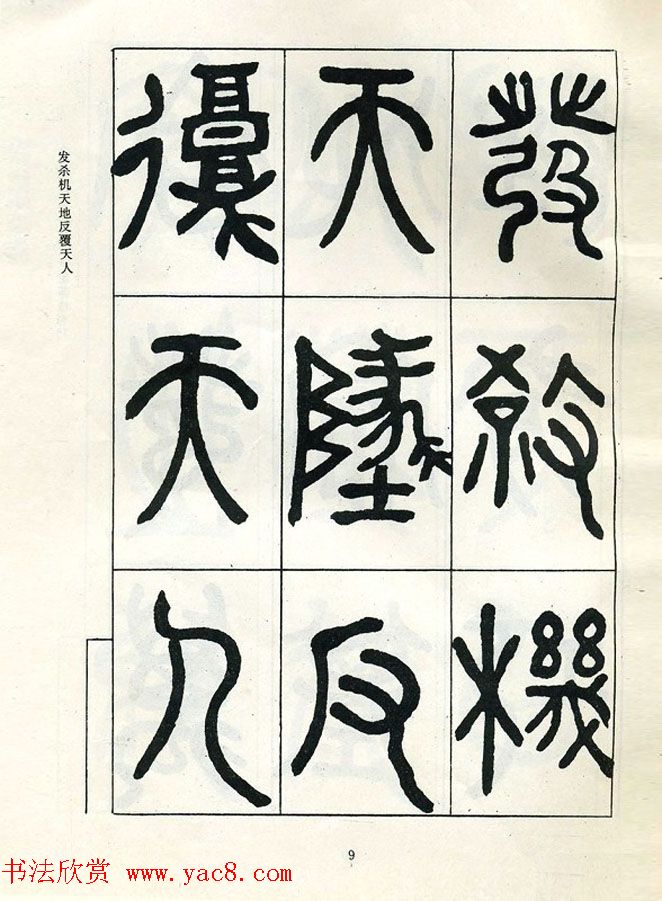 發殺機
天墬反
復天人
发杀机天地反覆天人
9
书法欣赏 www.yac8.com